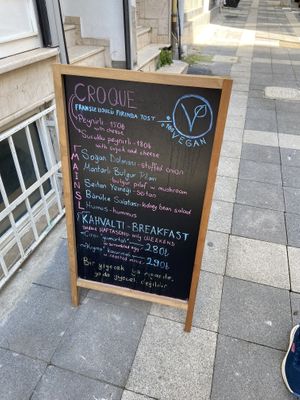 CROQUE
FRANSIZ USULÜ FIRINDA TOST
Peynirli - 150₺
with cheese
Sucuklu peynirli - 180₺
with sucuk and cheese
100%
VEGAN
MAINS
Soğan Dolması - stuffed onion
Mantarlı Bulgur Pilavı
bulgur pilaf w mushroom
Seitan Yemeği - Seitan
Barbunya Salatası - kidney bean salad
Humus - hummus
KAHVALTI - BREAKFAST
SADECE HAFTASONU - only WEEKENDS
280₺
w scrambled egg
290₺
Bir yiyecek ya
ya da yiyecek değildir